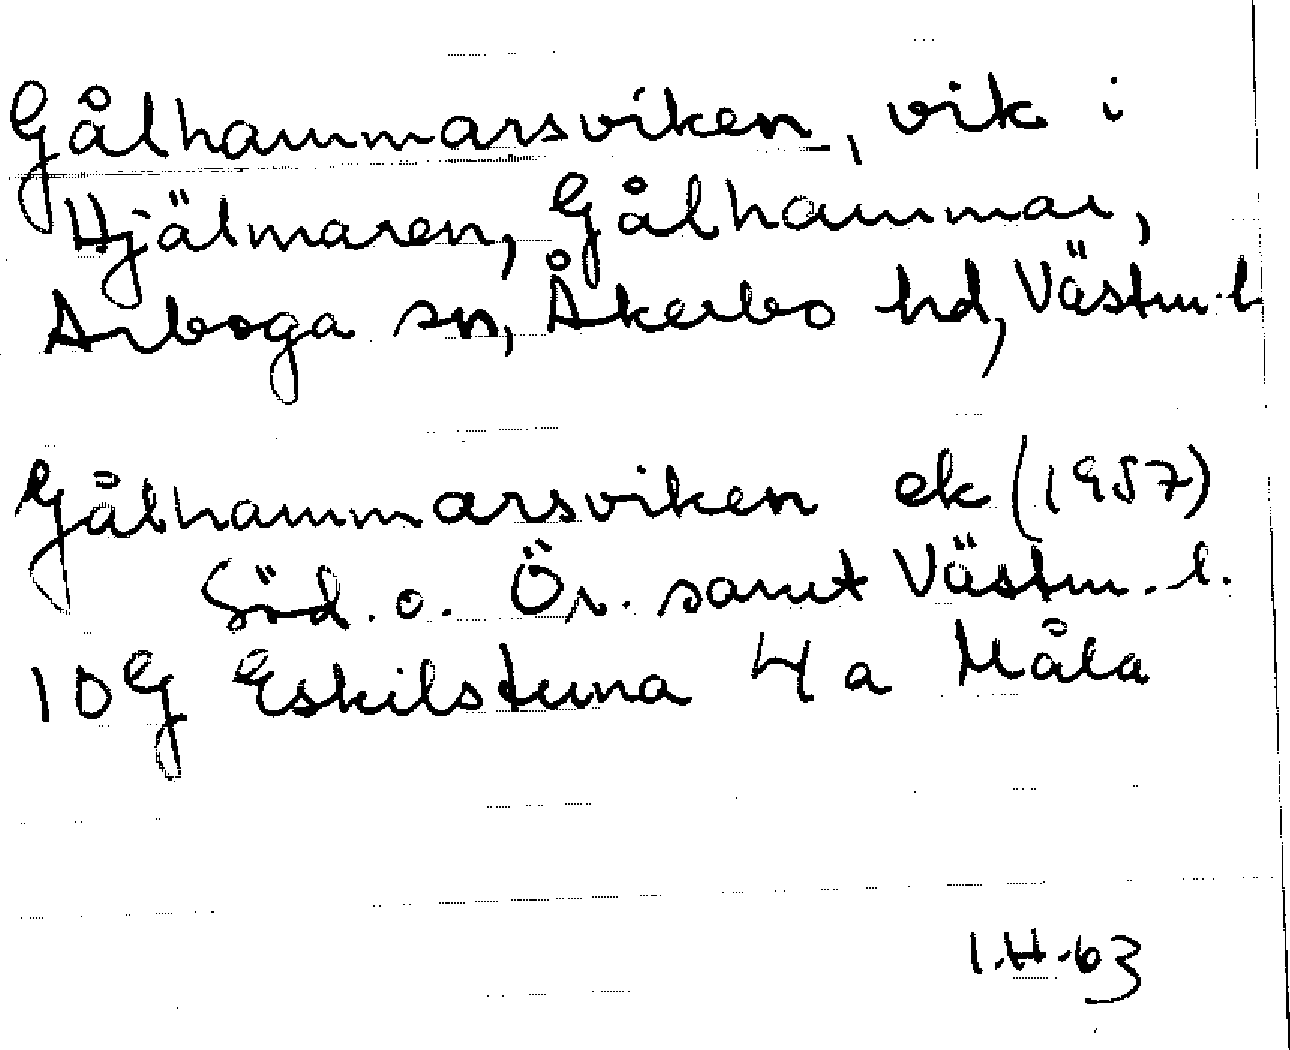 Gålhammarsviken, vik i
Hjälmaren, Gålhammar,
Arboga sn, Åkerbo hd, Västm. l.
Gålhammarsviken ek (1957)
Söd. o. Ör. samt Västm. l.
10G Eskilstuna 4 a Måla
I.H.63